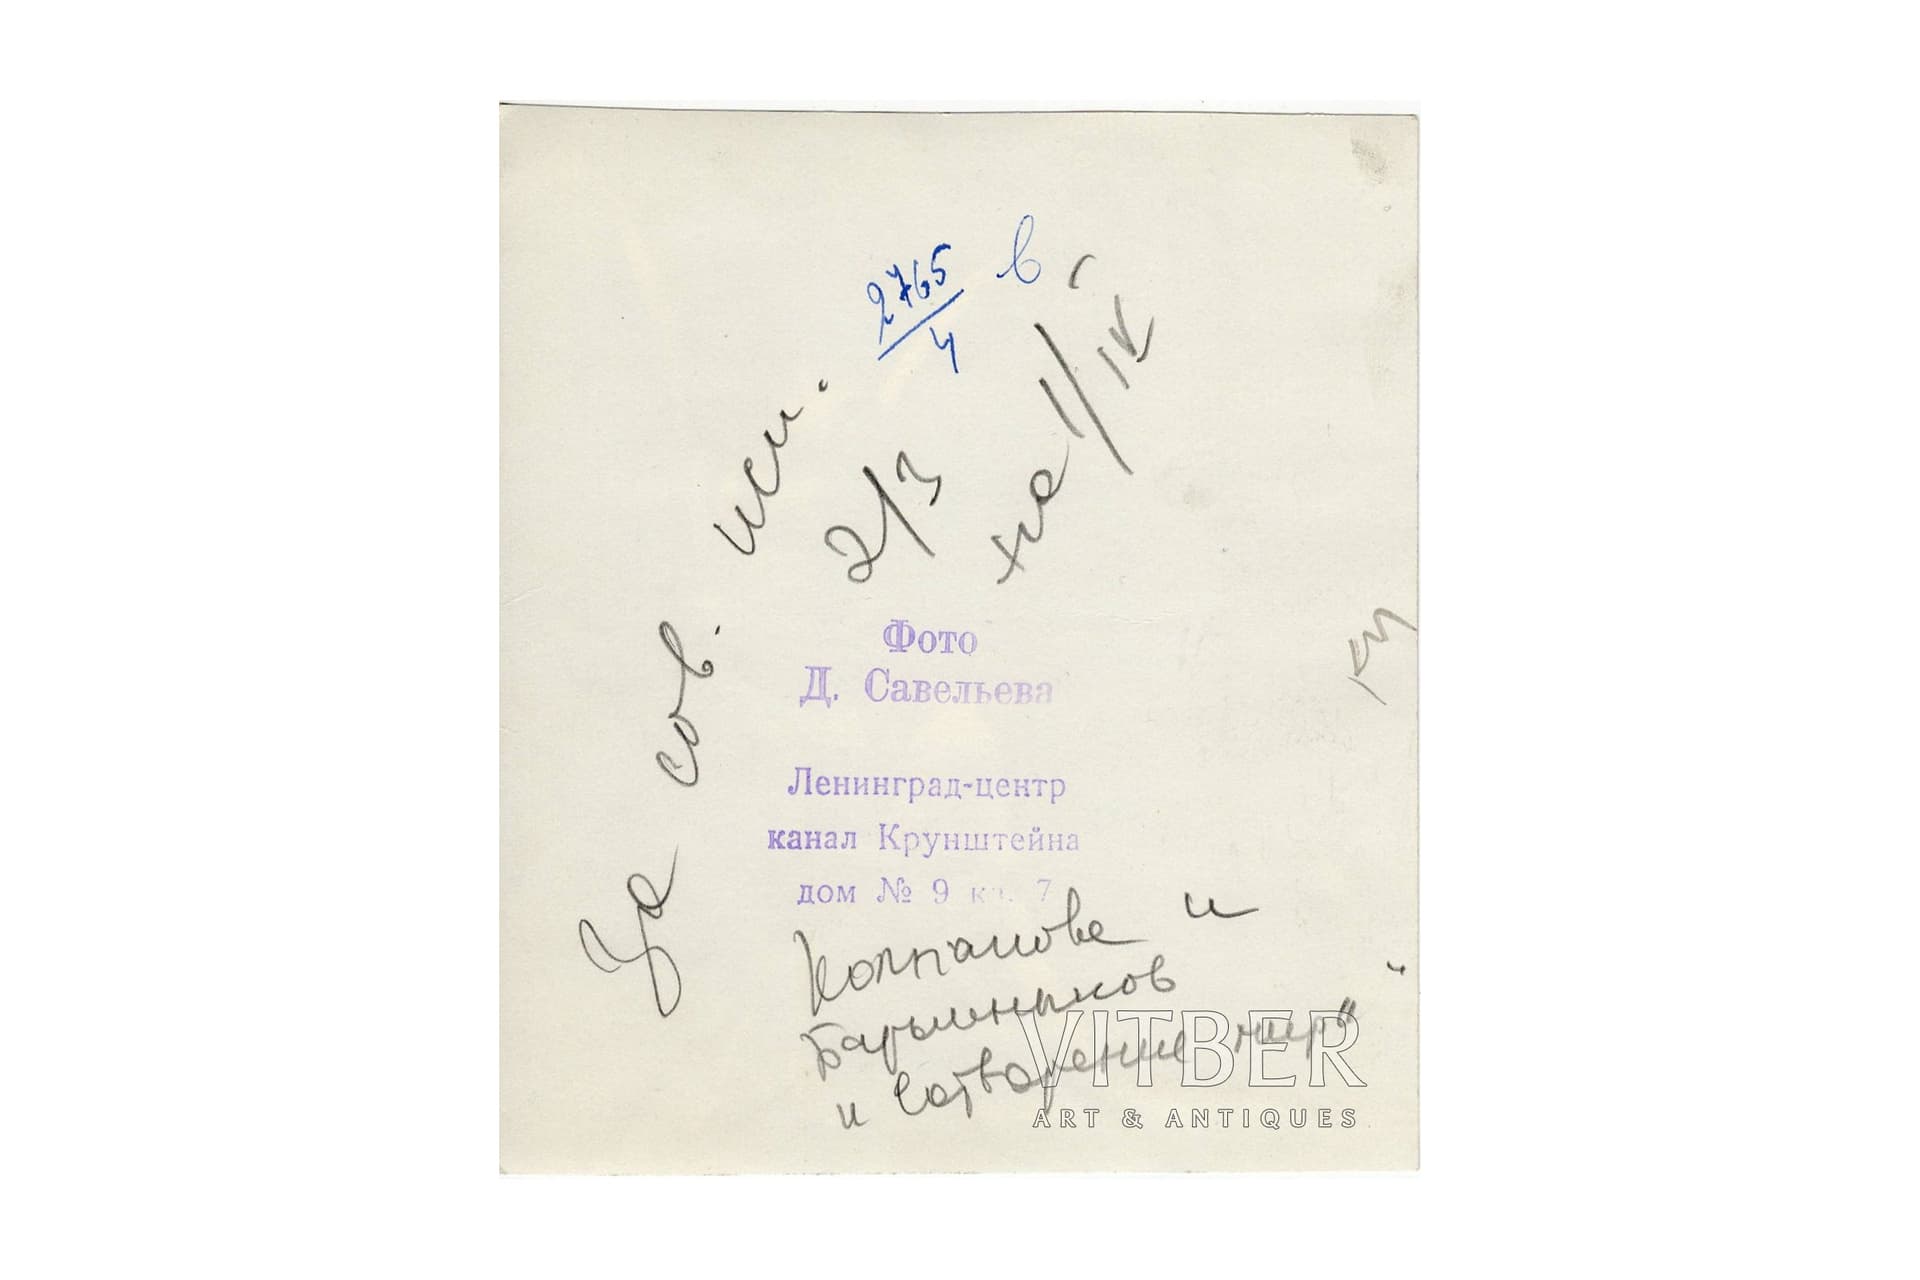 2765 в
4
За сов. иск.
2/3
на 1/IV
Фото
Д. Савельева
Ленинград-центр
канал Крунштейна
дом № 9 кв. 7
Колпакова и
Барышников
и Сотворение мира"
VITBER
ART & ANTIQUES